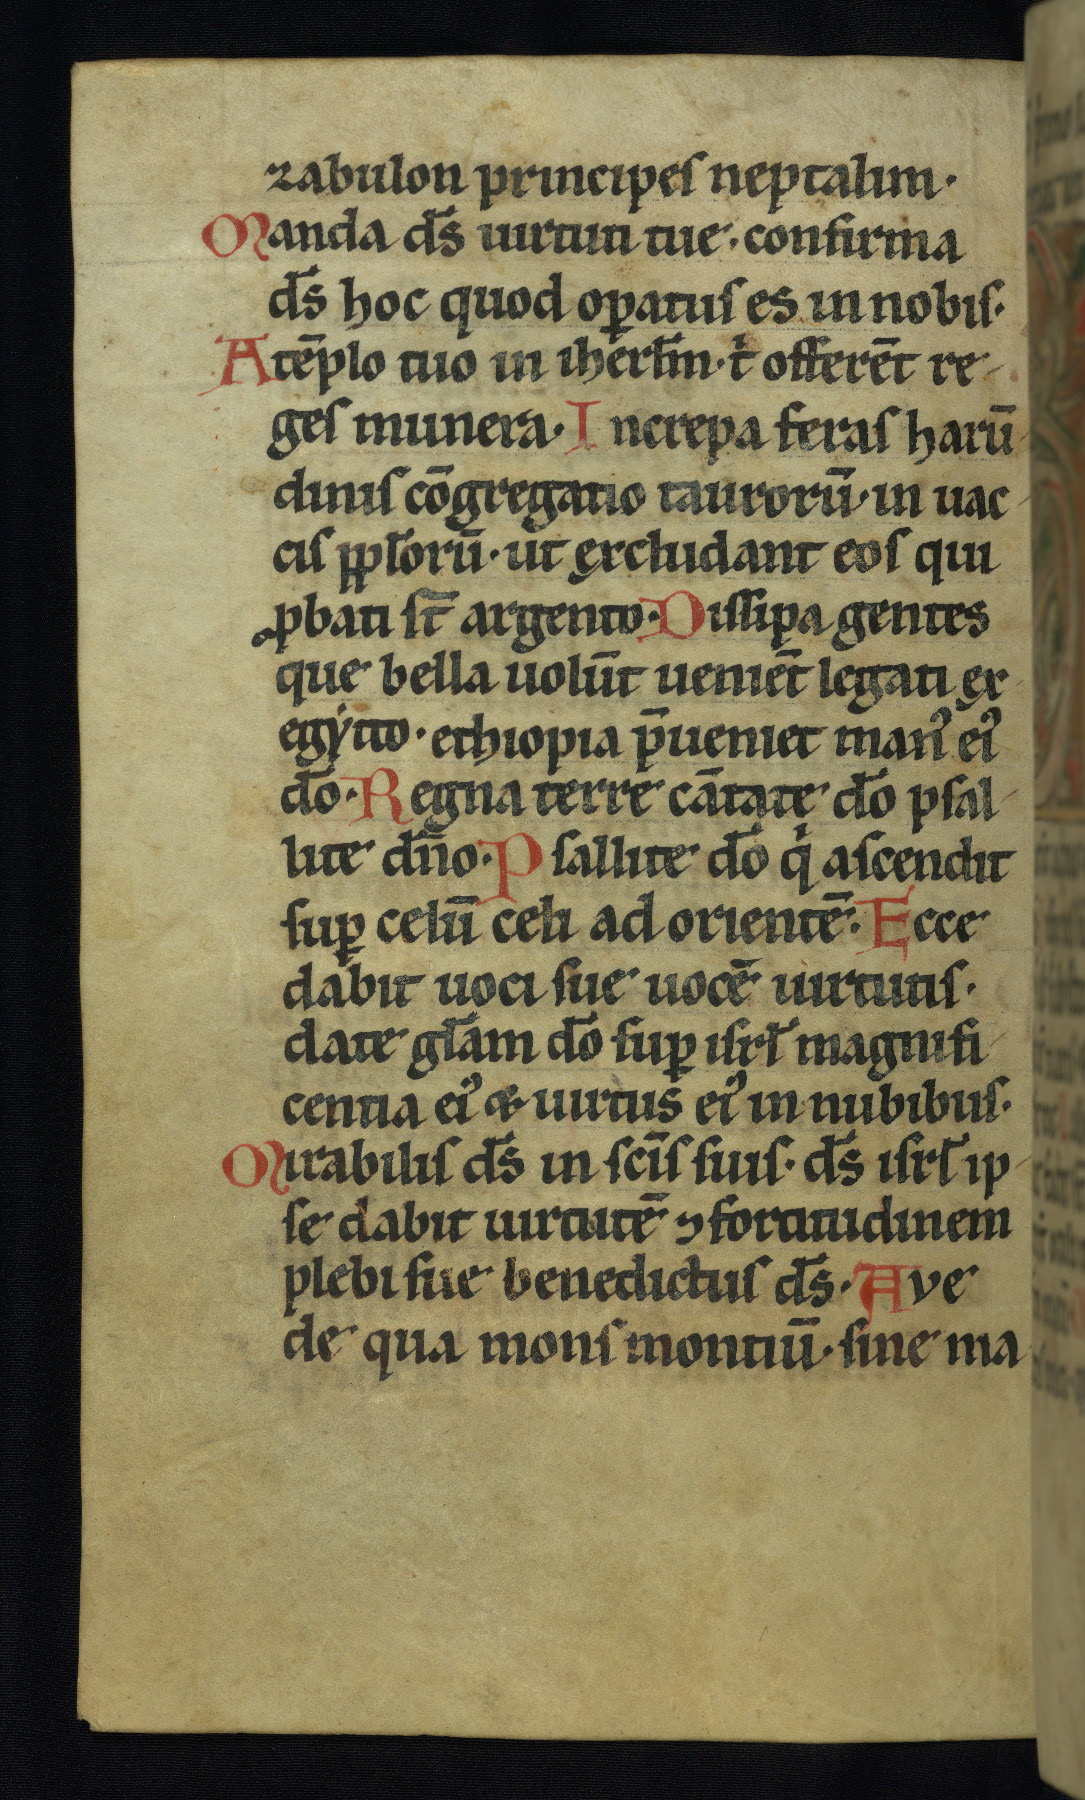 zabulon principes neptalim·
Manda d̄s uirtuti tue·confirma
d̄s hoc quod oꝑatus es in nobis·
A tēplo tuo in ihe̅rl̅m·t͛ offerēt re
ges munera·Increpa feras harū
dinis cōgregatio taurorū·in uac
cis ꝑpl̅orū·ut excludant eos qui
ꝓbati st̄ argento·Dissipa gentes
que bella uolūt ueniēt legati ex
egytto·ethiopia p̄ueniet man᾽ ei᾽
d̄o·Regna terre cātate d̄o psal
lite dn̄o·Psallite d̄o qͥ ascendit
suꝑ celū celi ad orientē·Ecce
dabit uoci sue uocē uirtutis·
date gl̄am d̄o suꝑ isrl̄ magnifi
centia ei᾽ & uirtus ei᾽ in nubibus·
Mirabilis d̄s in sc̄is suis·d̄s isrl̄ ip
se dabit uirtutē ⁊ fortitudinem
plebi sue benedictus d̄s·Ave
de qua mons montiū·sine ma